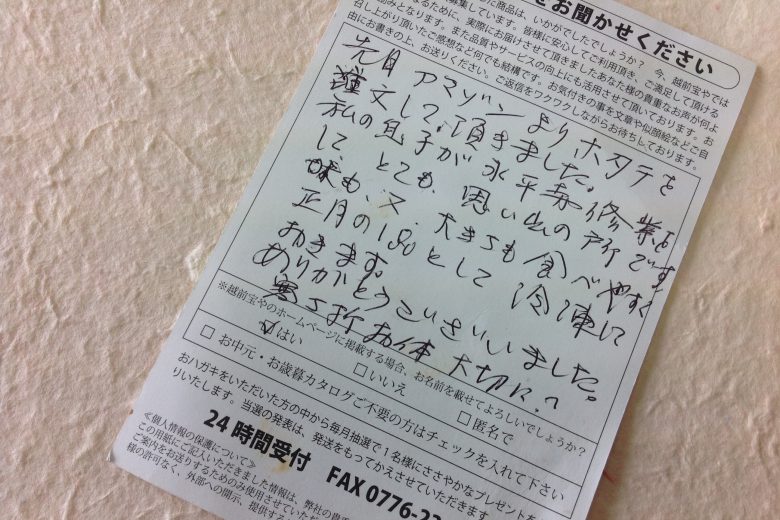 をお聞かせください
た商品は、いかがでしたでしょうか？ 今、越前宝やでは
募集しています。皆様に安心してご利用頂き、ご満足して頂ける
なるために、実際にお届けさせて頂きましたあなた様の貴重なお声が何よ
組みとなります。また品質やサービスの向上にも活用させて頂いております。お
召し上がり頂いたご感想など何でも結構です。お気付きの事を文章や似顔絵などご自
由にお書きの上、お送りください。ご返信をワクワクしながらお待ちしております。
先月 アマゾンよりホタテを
注文して頂きました。
私の息子が永平寺修業を
して、とても思い出の所です
味も、又、大きさも食べやすく
正月の1品として冷凍して
おきます。
ありがとうございいました。
寒さ折お体大切に。
※越前宝やのホームページに掲載する場合、お名前を載せてよろしいでしょうか？
☑はい □いいえ □匿名で
□ お中元・お歳暮カタログご不要の方はチェックを入れて下さい
おハガキをいただいた方の中から毎月抽選で1名様にささやかなプレゼントを
りいたします。当選の発表は、発送をもってかえさせていただきます
24時間受付 FAX 0776-23
≪個人情報の保護について≫
この用紙にご記入いただきました情報は、弊社の
ご案内をお送りするためのみ使用させていただ
様の許可なく、外部への開示、提供する